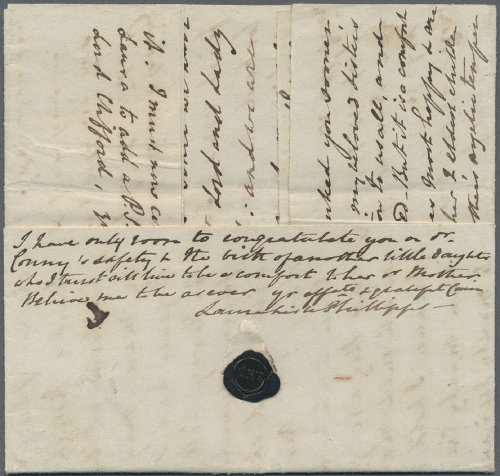 it. I must now
Laura to add a PS
Lord Clifford,
Lord and Lady
: and we are
nked you sooner
my beloved sister's
to us all, and
But it is a comfort
most happy & we
her 2 eldest childre
this angelic temper
I have only room to congratulate you on dr.
Conny's safety & the birth of another little Daughter
who I trust will live to be a comfort to her dr Mother
Believe me to be as ever yr affate & grateful Cousin
Phillipps